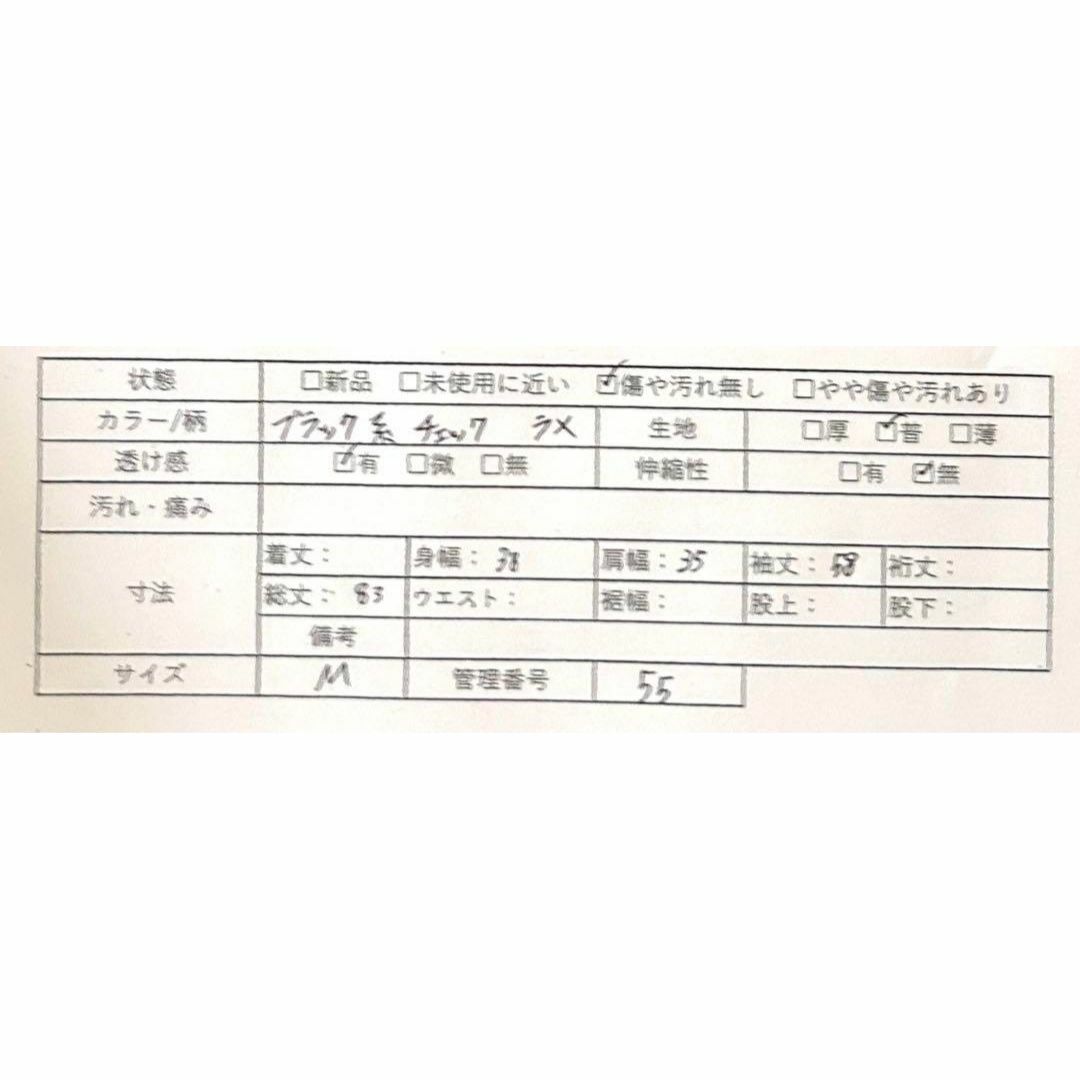 状態 □新品 □未使用に近い ☑傷や汚れ無し □やや傷や汚れあり
カラー/柄 ブラック系 チェック ラメ 生地 □厚 ☑普 □薄
透け感 ☑有 □微 □無 伸縮性 □有 ☑無
汚れ・痛み
寸法 着丈： 身幅：38 肩幅：35 袖丈： 裄丈：
総丈：83 ウエスト： 裾幅： 股上： 股下：
備考
サイズ M 管理番号 55